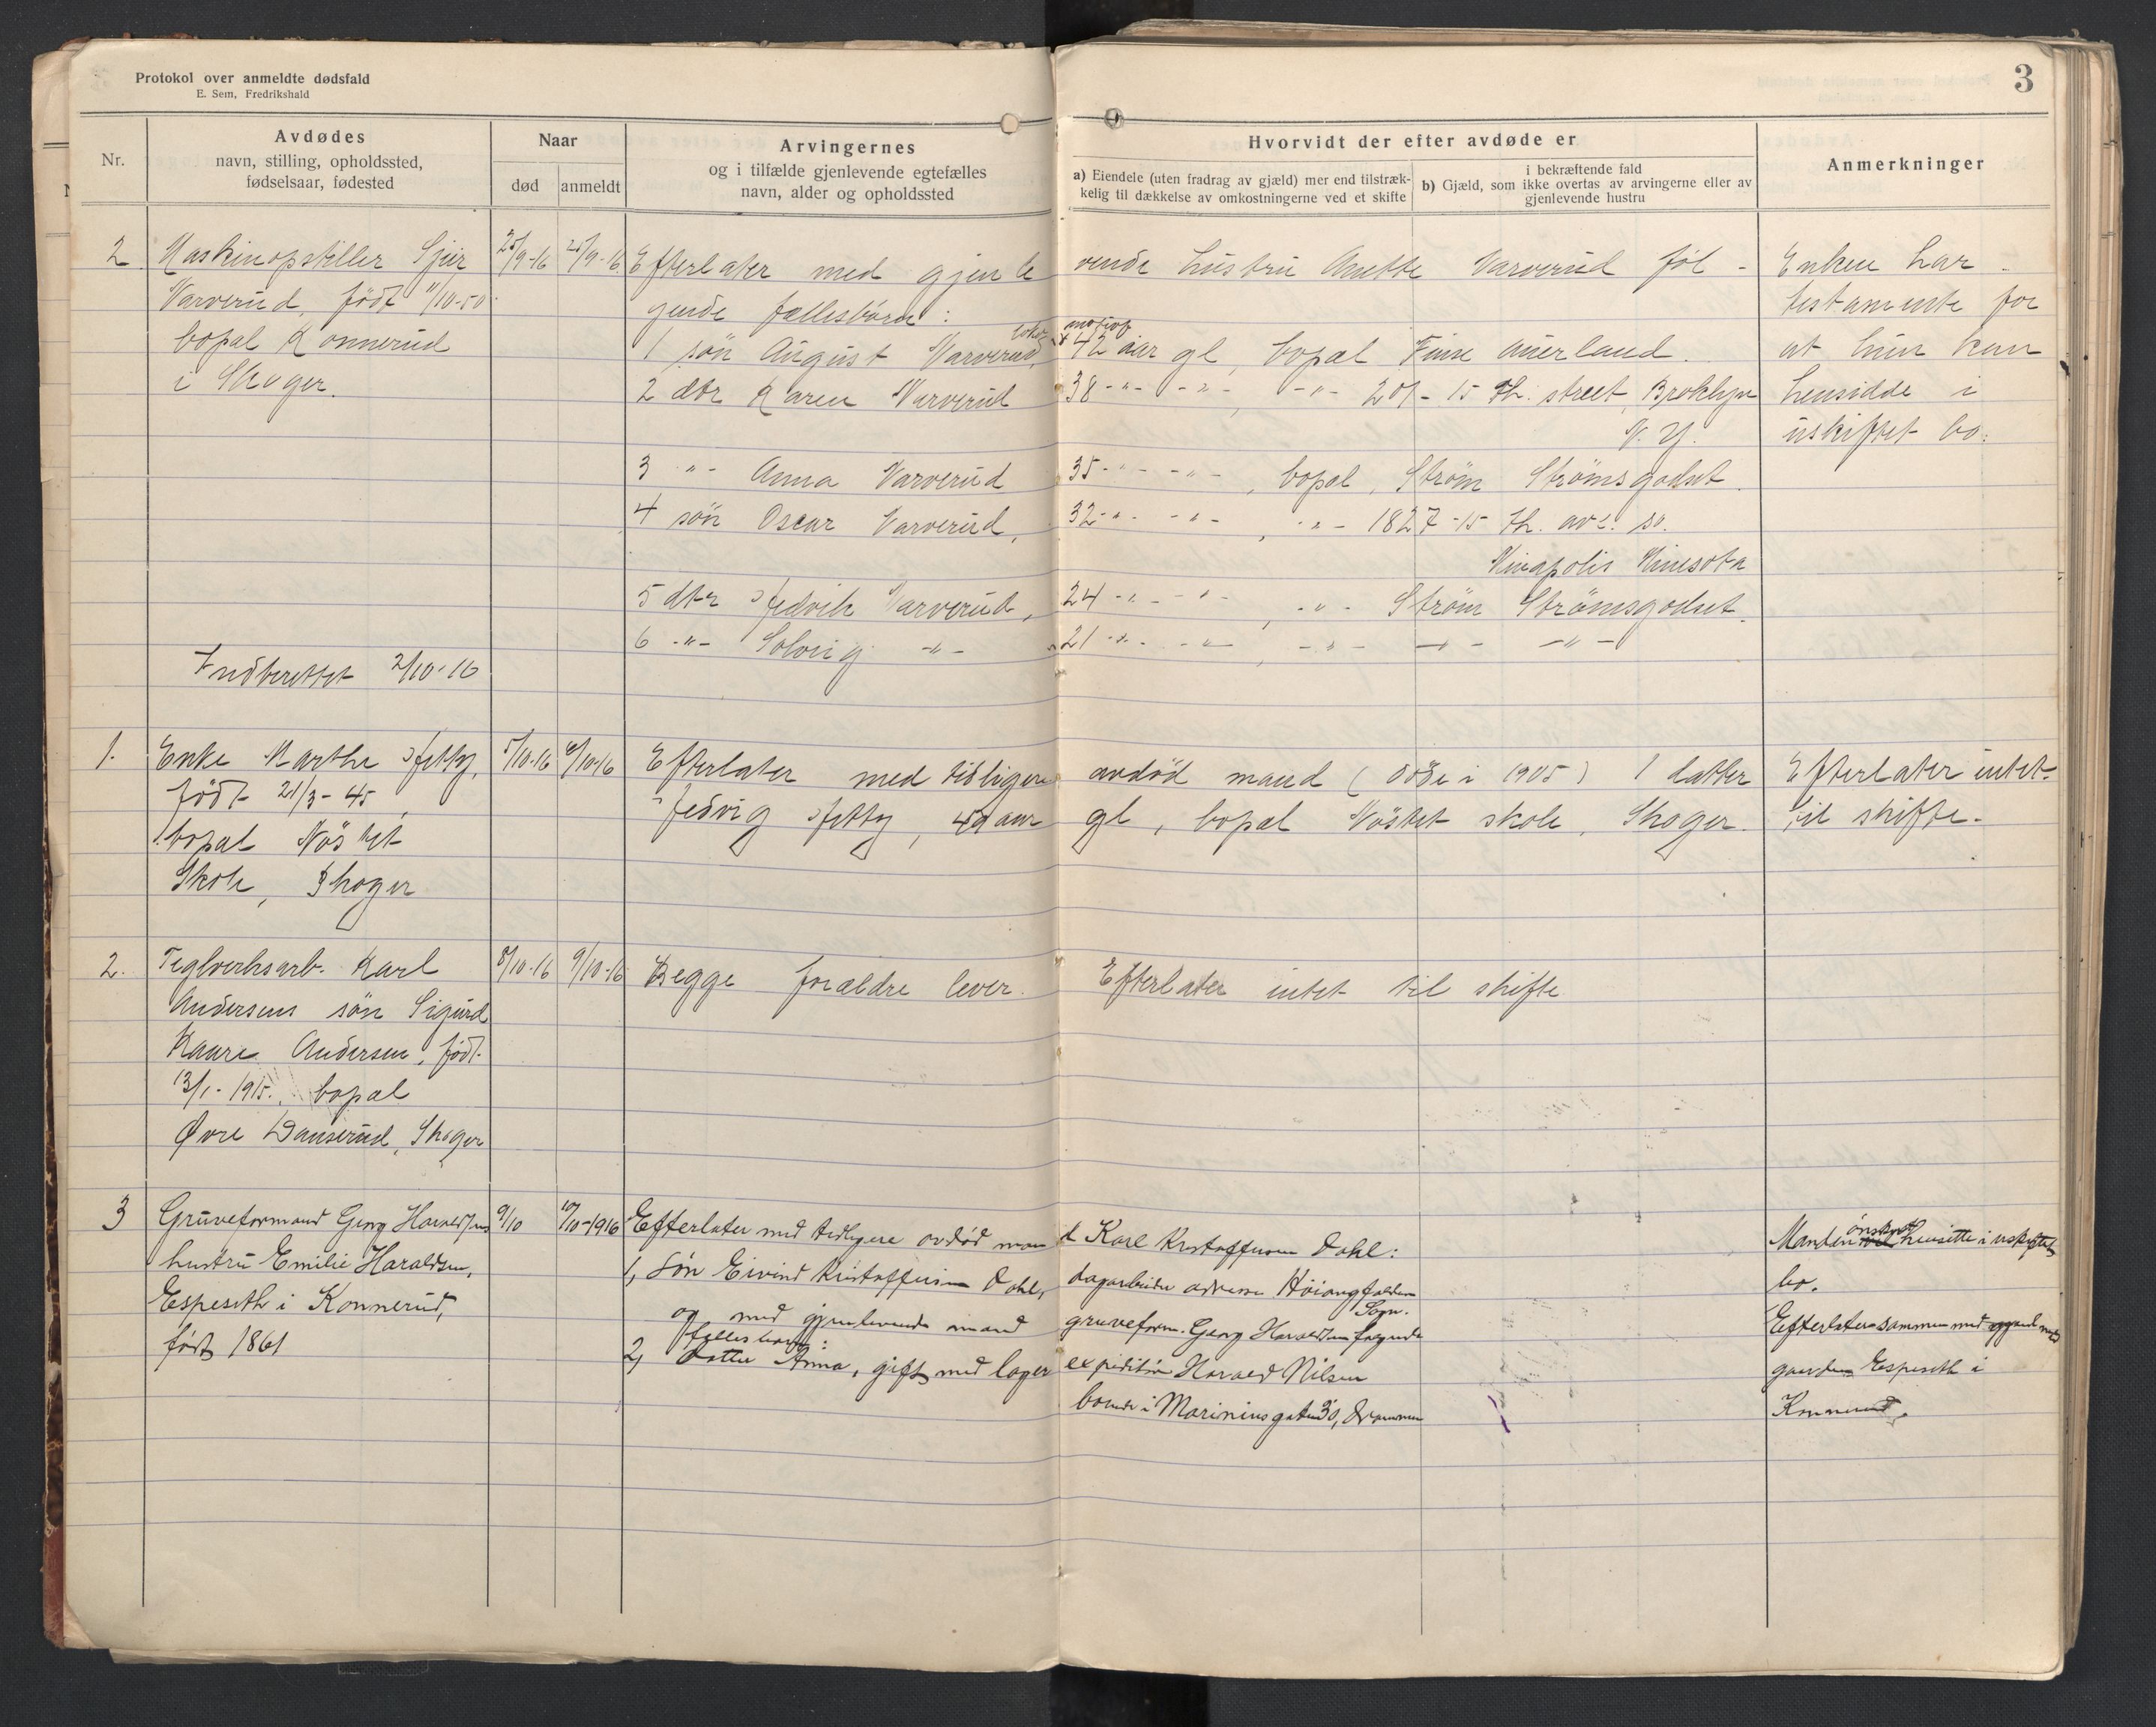 Protokol over anmeldte dødsfald
E. Sem, Fredrikshald
3
Nr.
Avdødes
navn, stilling, opholdssted,
fødselsaar, fødested
Naar
død
anmeldt
Arvingernes
og i tilfælde gjenlevende egtefælles
navn, alder og opholdssted
Hvorvidt der efter avdøde er
a) Eiendele (uten fradrag av gjæld) mer end tilstræk-
kelig til dækkelse av omkostningerne ved et skifte
i bekræftende fald
b) Gjæld, som ikke overtas av arvingerne eller av
gjenlevende hustru
Anmerkninger
2. Maskinopstiller Sjur
Varverud, født 11/10-50
bopal Konnerud
i Skoger.
25/9-16
25/9-16
Efterlater med gjenle vende hustru Anette Varverud føl-
gende fællesbørn:
1 søn August Varverud, lokomotivf 42 aar gl, bopal Finse Aurland.
2 dtr Karen Varverud 38 -"- -"-, -"- 201-15 Th. street, Broklyn
N. Y.
3 -"- Anna Varverud 35 -"- -"-, bopal, Strøm Strømsgodset.
4 søn Oscar Varverud, 32 -"- -"-, -"- 1827-15 th. ave. so.
Minapolis Minesota
5 dtr Hedvik Varverud, 24 -"- -"-, -"- Strøm Strømsgodset.
6 -"- Solveig -"- 21 -"- -"-, -"- -"- -"-
Enken har
testamente for
at hun kan
hensidde i
uskiftet bo.
Indberettet 2/10-16
1. Enke Marthe Hetty,
født 21/3-45,
bopal Nøstet
Skole, Skoger
5/10-16
6/10-16
Efterlater med tidligere avdød mand (døde i 1905) 1 datter
Hedvig Hetty, 49 aar gl, bopal Nøstet skole, Skoger.
Efterlater intet
til skifte.
2. Teglverksarb. Karl
Andersens søn Sigurd
Kaare Andersen, født
13/1-1915, bopal
Øvre Danserud, Skoger
8/10-16
9/10-16
Begge forældre lever. Efterlater intet til skifte
3 Gruveformand Georg Haraldsens
hustru Emilie Haraldsen,
Espeseth i Konnerud,
født 1861
9/10
10/10-1916
Efterlater med tidligere avdød mand Karl Kristoffersen Dahl:
1, Søn Eivind Kristoffersen Dahl, dagarbeider adresse Høiangfalden
Sogn.
og med gjenlevende mand gruveform. Georg Haraldsen følgende
fællesbarn:
2, Datter Anna, gift med lager expeditør Harald Nilsen
boende i Mariniusgaten 30, Drammen
Manden ønsker hensitte i uskiftet
bo.
Efterlater sammen med
gaarden Espeseth i
Konnerud.